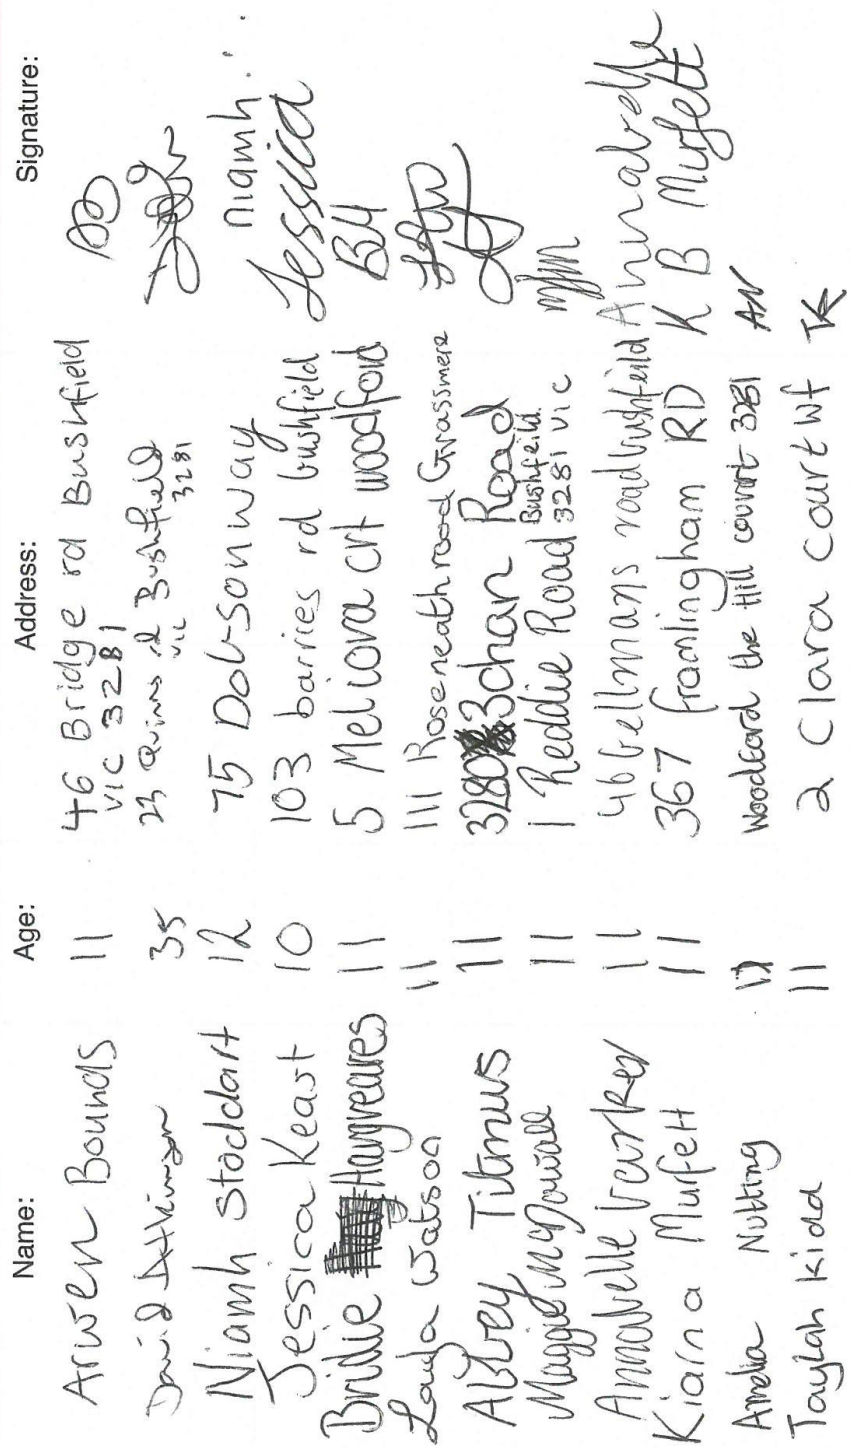 Name: Age: Address: Signature:
Arwen Bounds 11 46 Bridge rd Bushfield
VIC 3281
David Atkinson 35 23 Quinns rd Bushfield
VIC 3281
Niamh Stoddart 12 75 Dobson way niamh
Jessica Keast 10 103 barries rd bushfield Jessica
Bridie Hargreaves 11 5 Meliora crt woodford BH
Layla Watson 11 111 Roseneath road Grassmere
Abbey Titmus 11 3280 3chan Road
Maggie McDowall 11 1 Reddie Road Bushfeild. 3281 vic mjm
Annabelle barker 11 46 bellmans road bushfeild Annabelle
Kiarna Murfett 11 367 framlingham RD K B Murfett
Amelia Nutting Woodford the Hill courrt 3281 AN
Taylah Kidd 11 2 Clara court wf TK